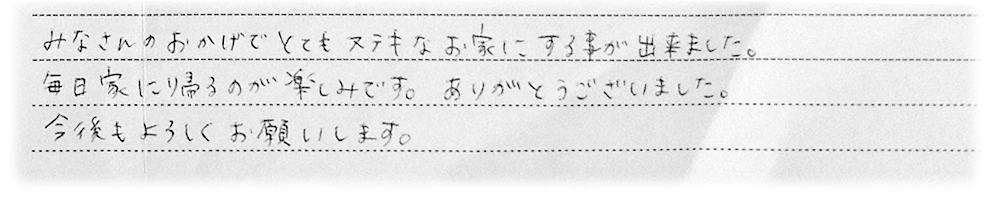 みなさんのおかげでとてもステキなお家にする事が出来ました。
毎日家に帰るのが楽しみです。ありがとうございました。
今後もよろしくお願いします。